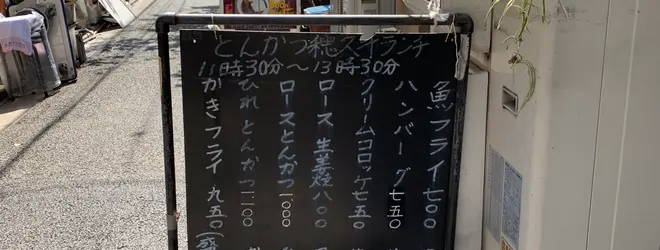 とんかつ穂スイランチ
11時30分～13時30分
魚フライ七00
ハンバーグ七五0
クリームコロッケ七五0
ロース生姜焼八00
ロースとんかつ1000
ひれとんかつ1100
かきフライ九五0